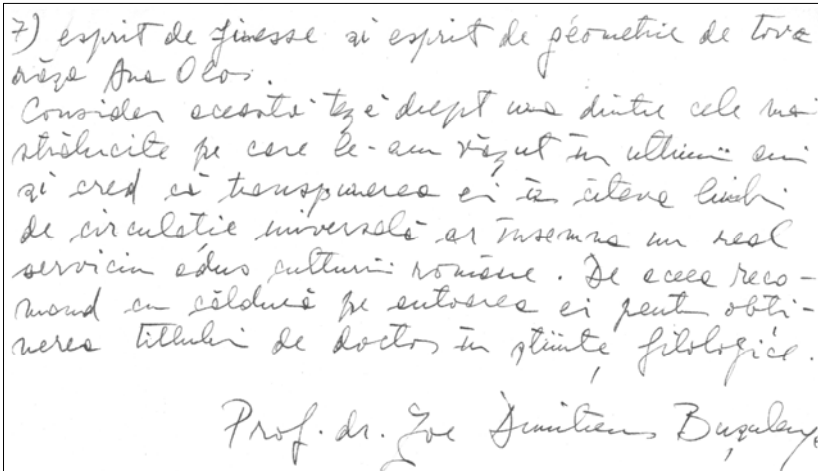 7) esprit de finesse și esprit de géometrie de tova
rășa Ana Olos.
Consider această teză drept una dintre cele mai
strălucite pe care le-am văzut în ultimii ani
și cred că transpunerea ei în câteva limbi
de circulație universală ar însemna un real
serviciu adus culturii române. De aceea reco-
mand cu căldură pe autoarea ei pentru obți-
nerea titlului de doctor în științe filologice.
Prof. dr. Zoe Dumitrescu Bușulenga